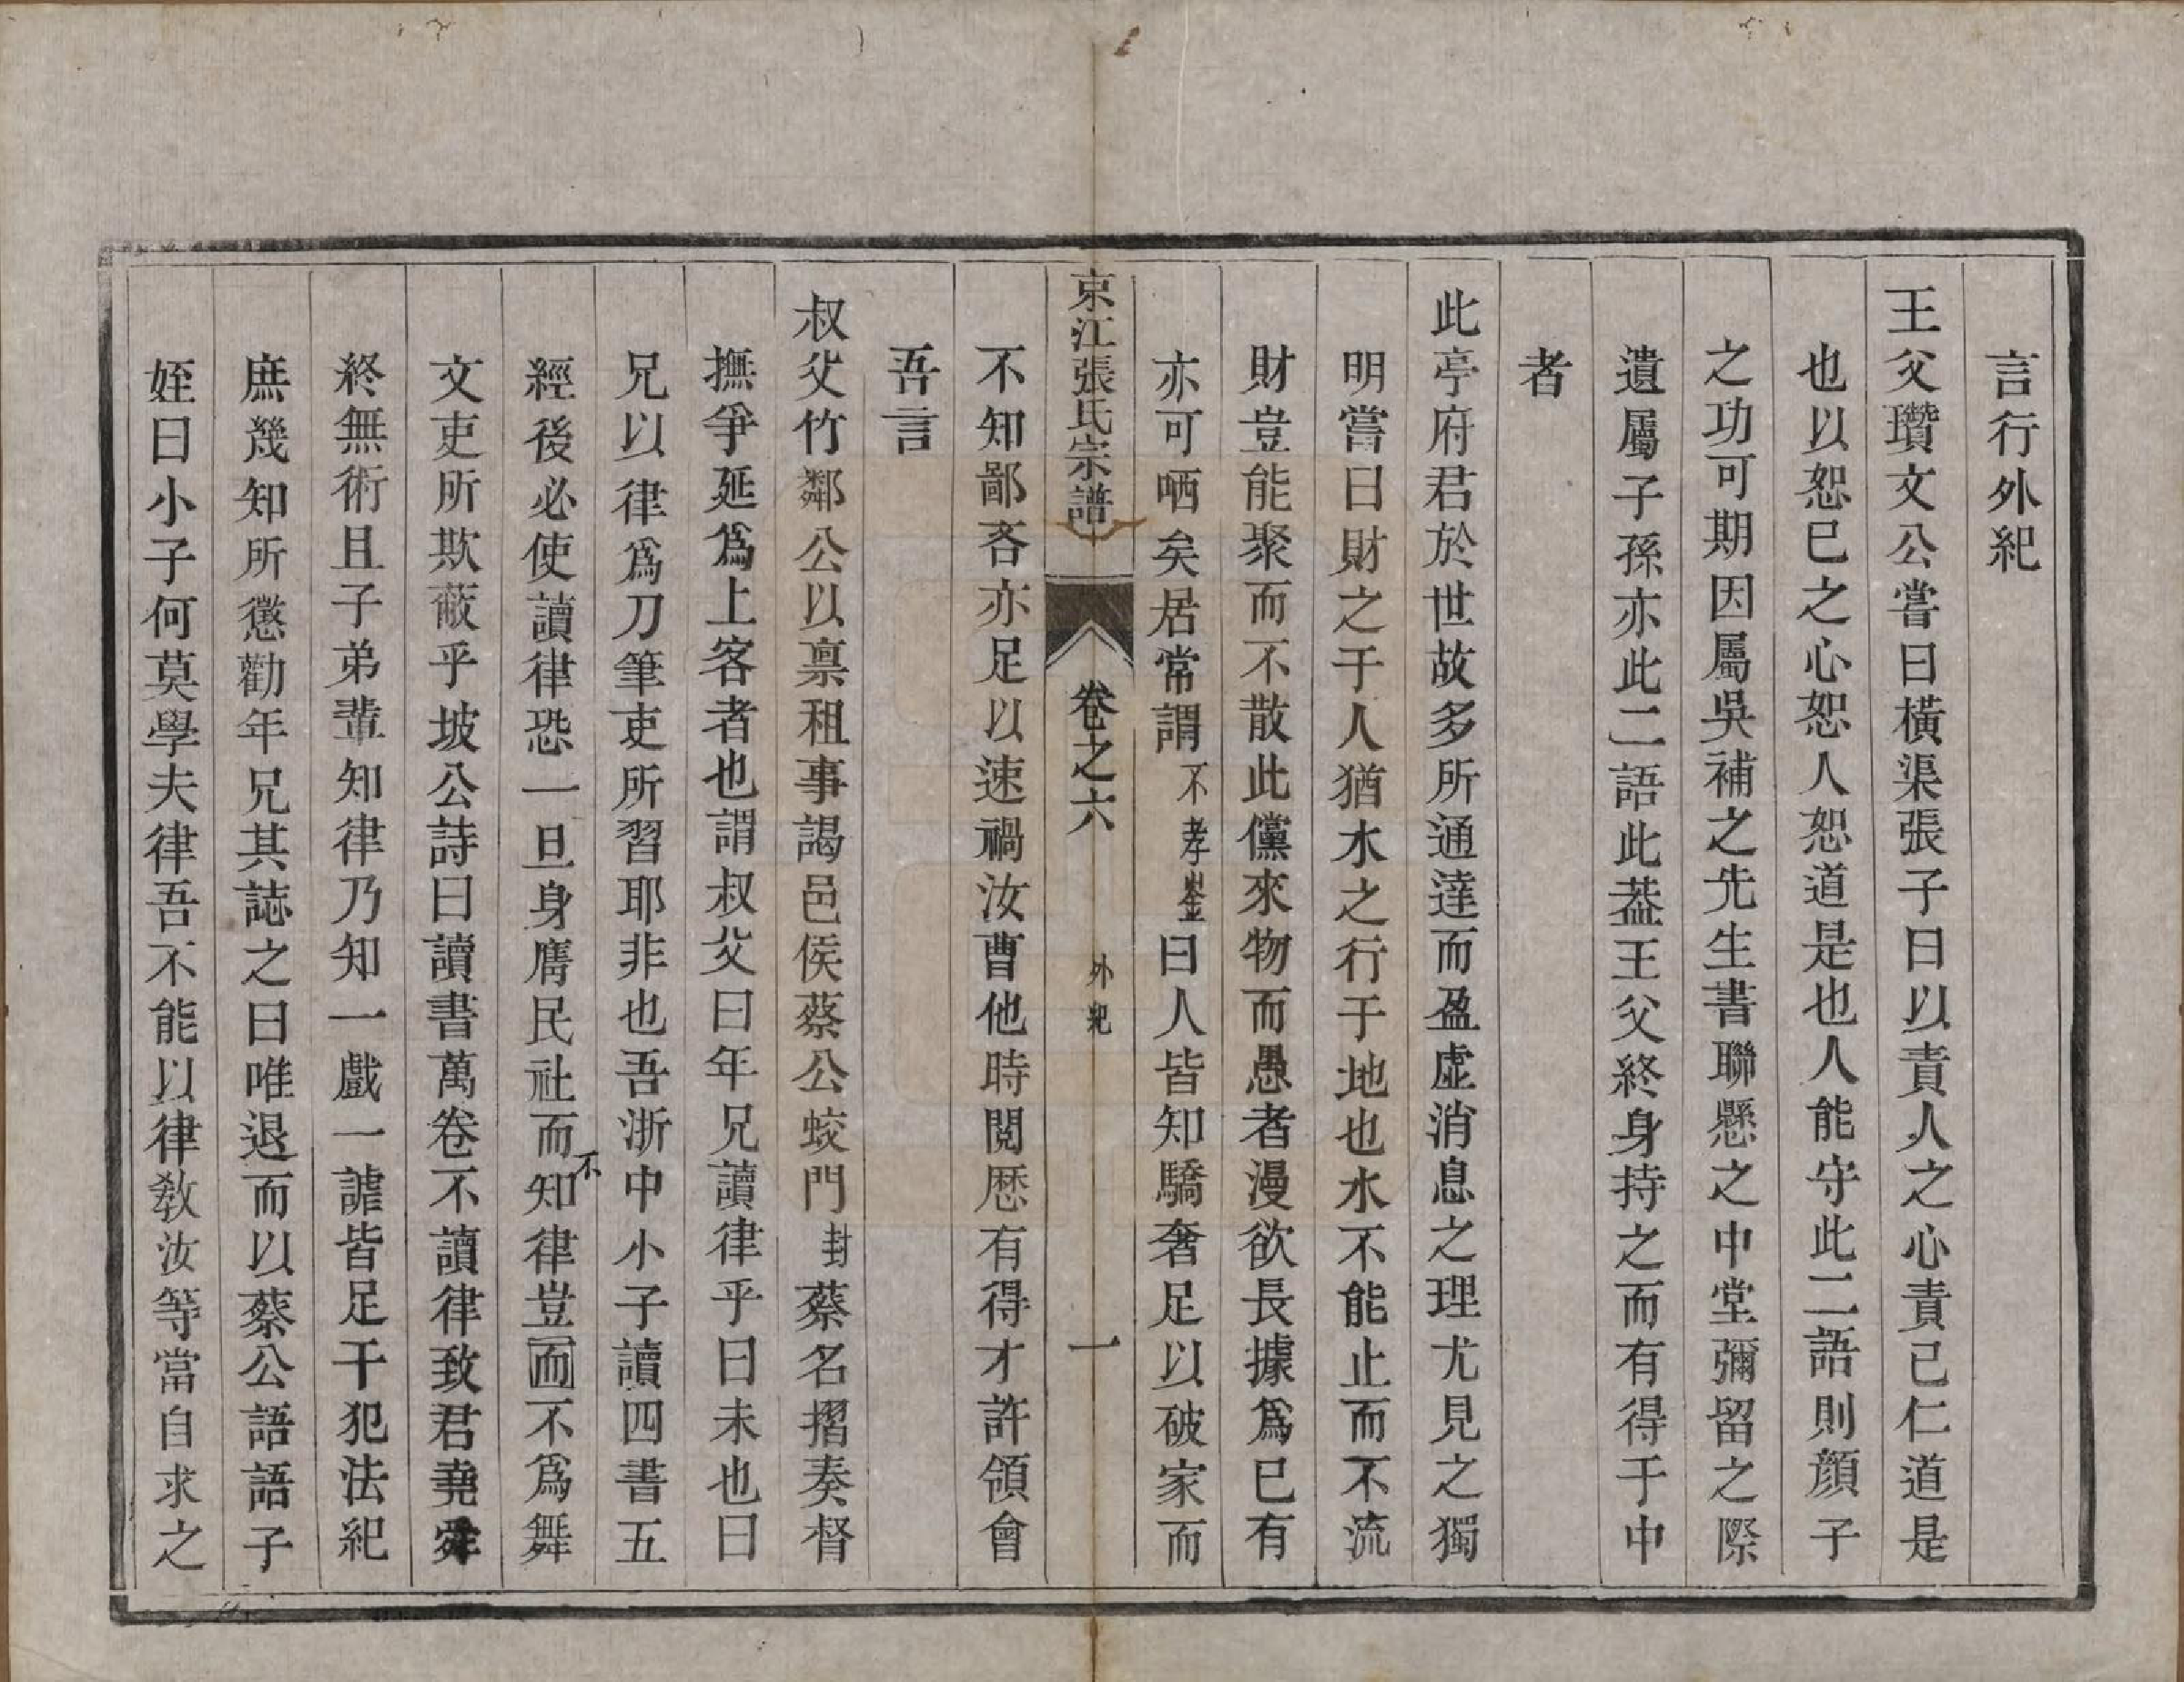 言行外紀
王父瓚文公嘗曰橫渠張子曰以責人之心責己仁道是
也以恕巳之心恕人恕道是也人能守此二語則顔子
之功可期因屬吳補之先生書聯懸之中堂彌留之際
遺屬子孫亦此二語此葢王父終身持之而有得于中
者
此亭府君於世故多所通達而盈虛消息之理尤見之獨
明嘗曰財之于人猶水之行于地也水不能止而不流
財豈能聚而不散此儻來物而愚者漫欲長據爲已有
亦可哂矣居常謂不孝崟曰人皆知驕奢足以破家而
京江張氏宗譜 卷之六 外紀 一
不知鄙吝亦足以速禍汝曹他時閱歷有得才許領會
吾言
叔父竹鄰公以禀租事謁邑侯蔡公蛟門封蔡名摺奏督
撫爭延爲上客者也謂叔父曰年兄讀律乎曰未也曰
兄以律爲刀筆吏所習耶非也吾浙中小子讀四書五
經後必使讀律恐一旦身膺民社而不知律豈而不爲舞
文吏所欺蔽乎坡公詩曰讀書萬卷不讀律致君堯舜
終無術且子弟輩知律乃知一戲一謔皆足干犯法紀
庶幾知所懲勸年兄其誌之曰唯退而以蔡公語語子
姪曰小子何莫學夫律吾不能以律敎汝等當自求之